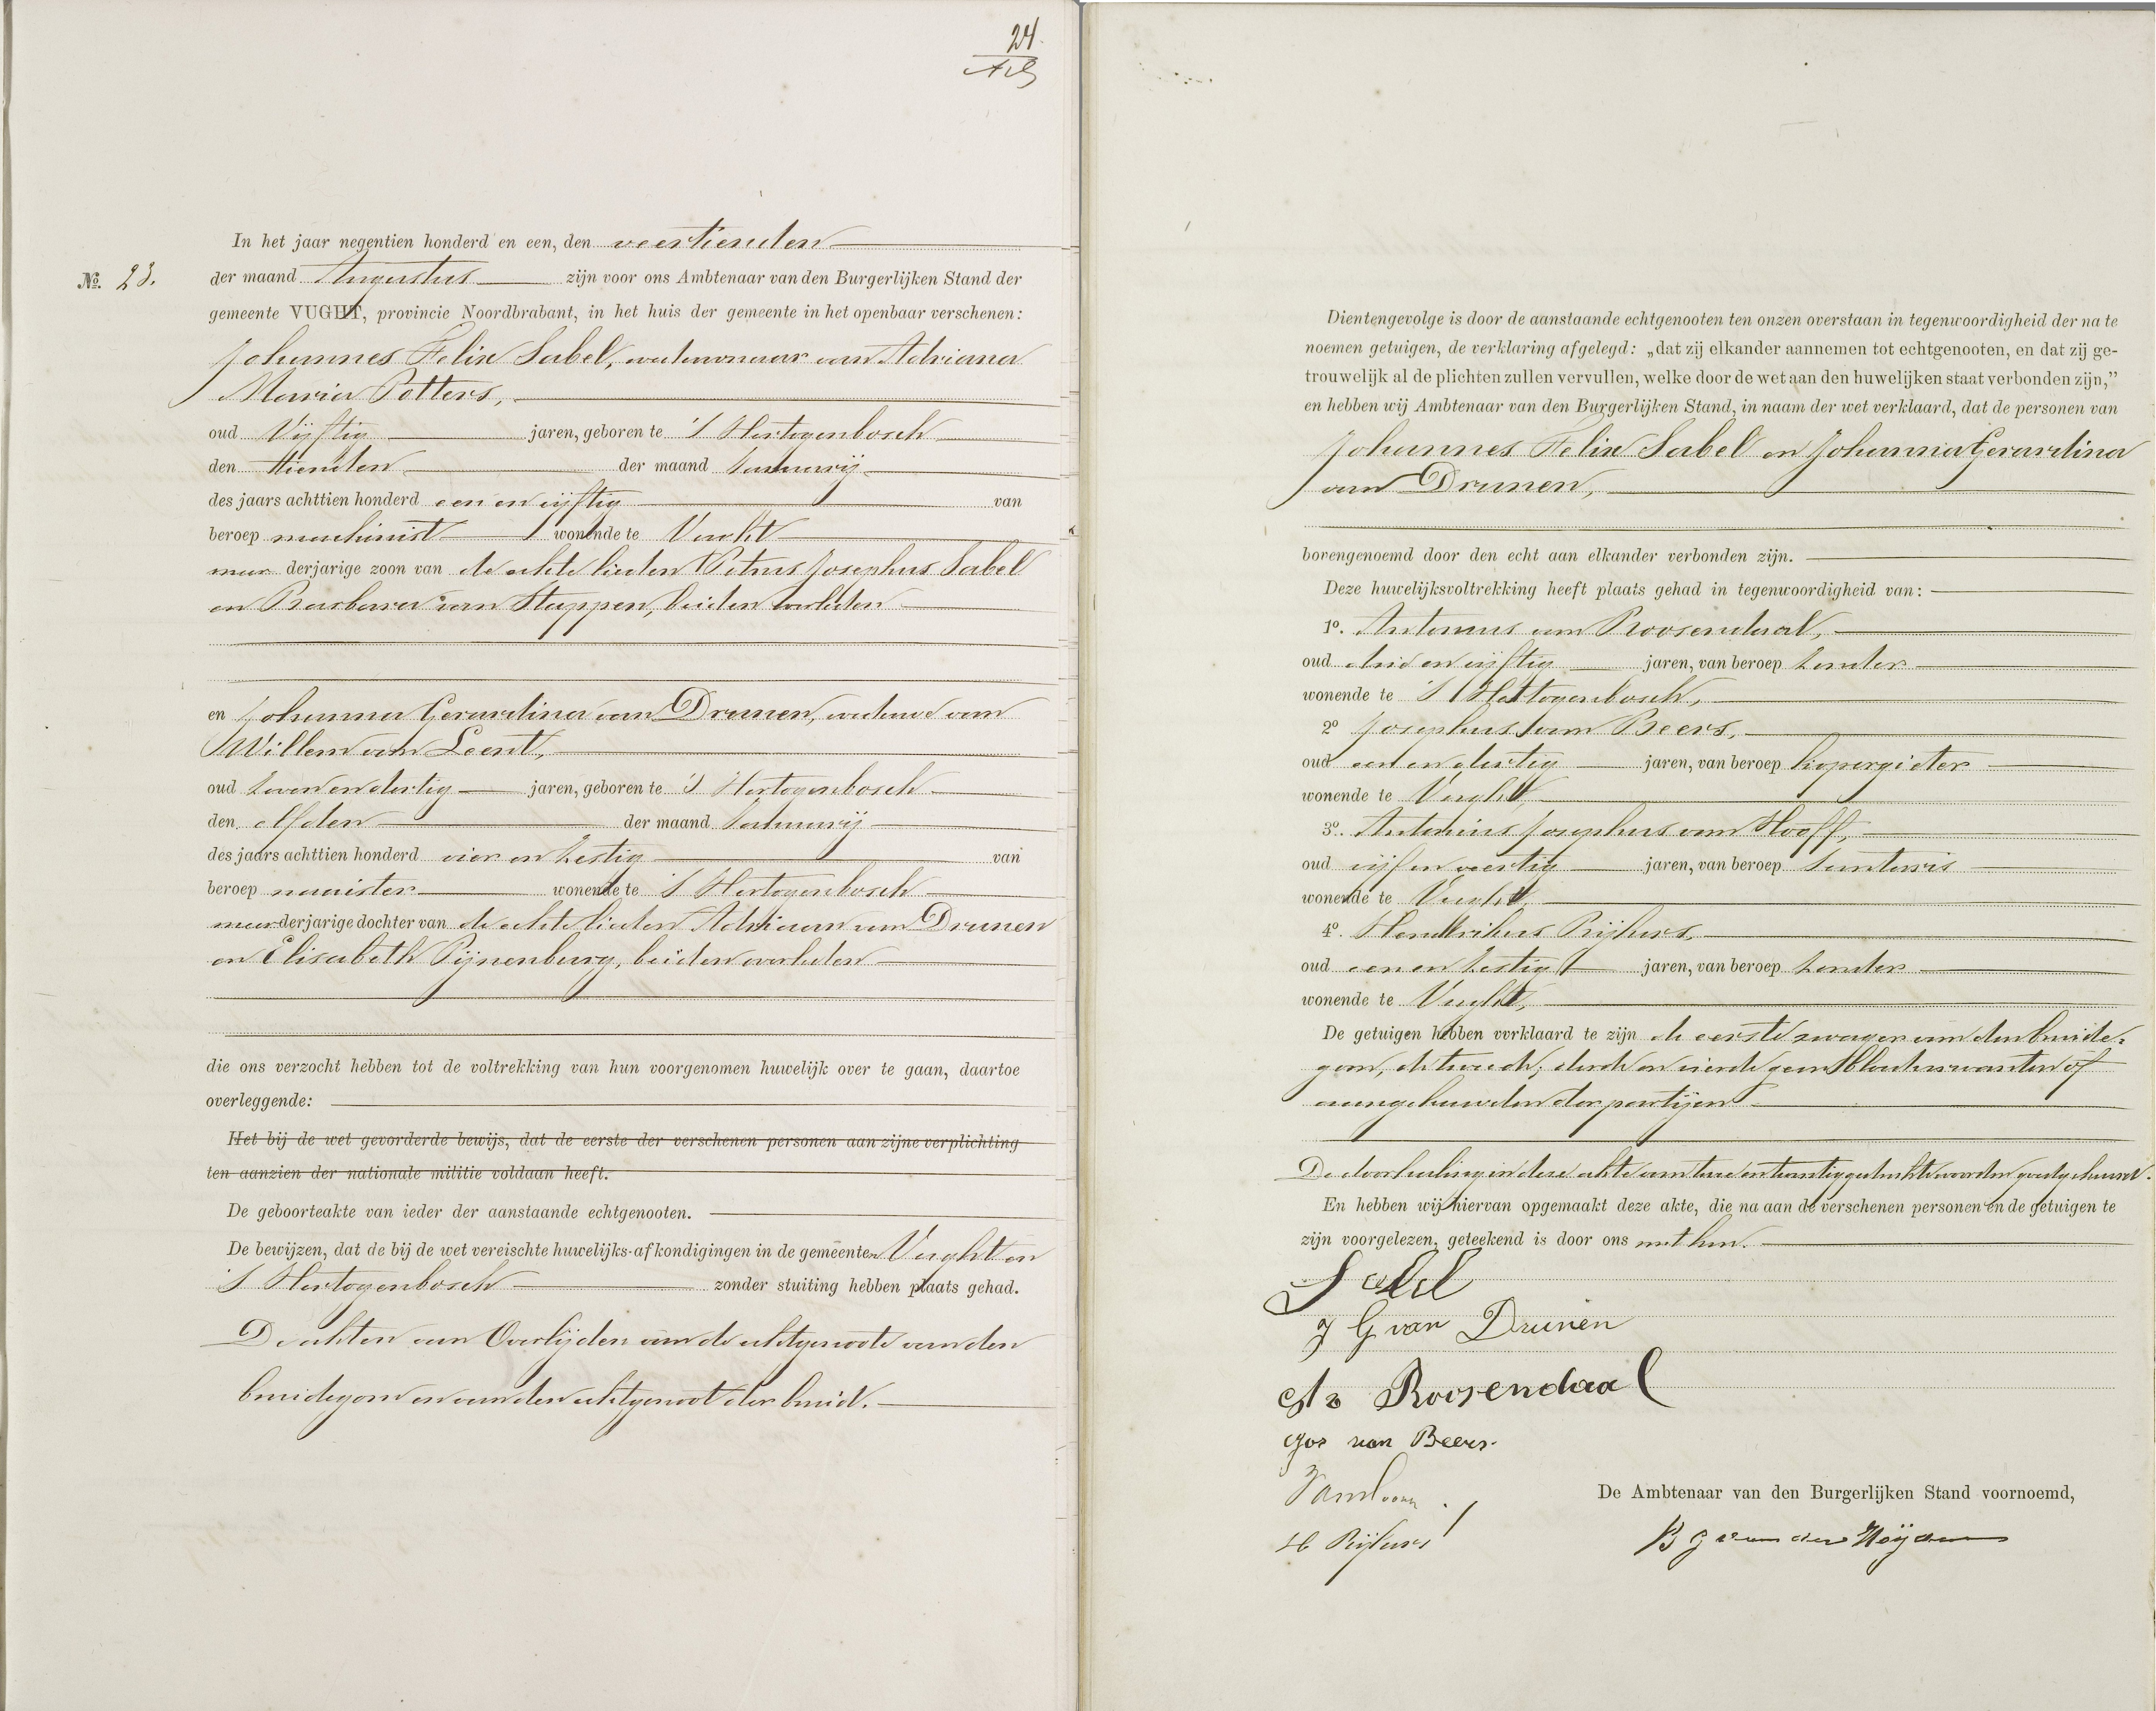 24.
In het jaar negentien honderd en een, den veertienden
No. 23. der maand Augustus zijn voor ons Ambtenaar van den Burgerlijken Stand der
gemeente VUGHT, provincie Noordbrabant, in het huis der gemeente in het openbaar verschenen:
Johannes Felix Sabel, weduwnaar van Adriana
Maria Potters,
oud Vijftig jaren, geboren te 'S Hertogenbosch
den tienden der maand Januarij
des jaars achttien honderd een en vijftig van
beroep machinist wonende te Vught
meerderjarige zoon van de echtelieden Petrus Josephus Sabel
en Barbara van Stappen, beiden overleden
en Johanna Gerardina van Drunen, weduwe van
Willem van Leent,
oud zeven en dertig jaren, geboren te 'S Hertogenbosch
den elfden der maand Januarij
des jaars achttien honderd vier en zestig van
beroep naaister wonende te 'S Hertogenbosch
meerderjarige dochter van de echtelieden Adriaan van Drunen
en Elisabeth Pijnenburg, beiden overleden
die ons verzocht hebben tot de voltrekking van hun voorgenomen huwelijk over te gaan, daartoe
overleggende:
Het bij de wet gevorderde bewijs, dat de eerste der verschenen personen aan zijne verplichting
ten aanzien der nationale militie voldaan heeft.
De geboorteakte van ieder der aanstaande echtgenooten.
De bewijzen, dat de bij de wet vereischte huwelijks-afkondigingen in de gemeenten Vught en
'S Hertogenbosch zonder stuiting hebben plaats gehad.
De akten van Overlijden van de echtgenoote van den
bruidegom en van den echtgenoot der bruid.
Dientengevolge is door de aanstaande echtgenooten ten onzen overstaan in tegenwoordigheid der na te
noemen getuigen, de verklaring afgelegd: „dat zij elkander aannemen tot echtgenooten, en dat zij ge-
trouwelijk al de plichten zullen vervullen, welke door de wet aan den huwelijken staat verbonden zijn,”
en hebben wij Ambtenaar van den Burgerlijken Stand, in naam der wet verklaard, dat de personen van
Johannes Felix Sabel en Johanna Gerardina
van Drunen,
bovengenoemd door den echt aan elkander verbonden zijn.
Deze huwelijksvoltrekking heeft plaats gehad in tegenwoordigheid van:
1o. Antonius van Roosendaal,
oud drie en vijftig jaren, van beroep zonder
wonende te 'S Hertogenbosch,
2o Josephus van Beers,
oud een en dertig jaren, van beroep kopergieter
wonende te Vught,
3o. Antonius Josephus van Hooff,
oud vijf en veertig jaren, van beroep Landmeter
wonende te Vught,
4o. Hendrikus Rijkers,
oud een en zestig jaren, van beroep zonder
wonende te Vught,
De getuigen hebben verklaard te zijn de eerste zwager van den bruide-
gom, de tweede, derde en vierde geen bloedverwanten of
aangehuwden der partijen
De doorhaling in deze akte van twee en twintig gedrukte woorden goedgekeurd.
En hebben wij hiervan opgemaakt deze akte, die na aan de verschenen personen en de getuigen te
zijn voorgelezen, geteekend is door ons met hen.
Sabel
J G van Drunen
Roosendaal
Jos van Beers.
H Rijkers
De Ambtenaar van den Burgerlijken Stand voornoemd,